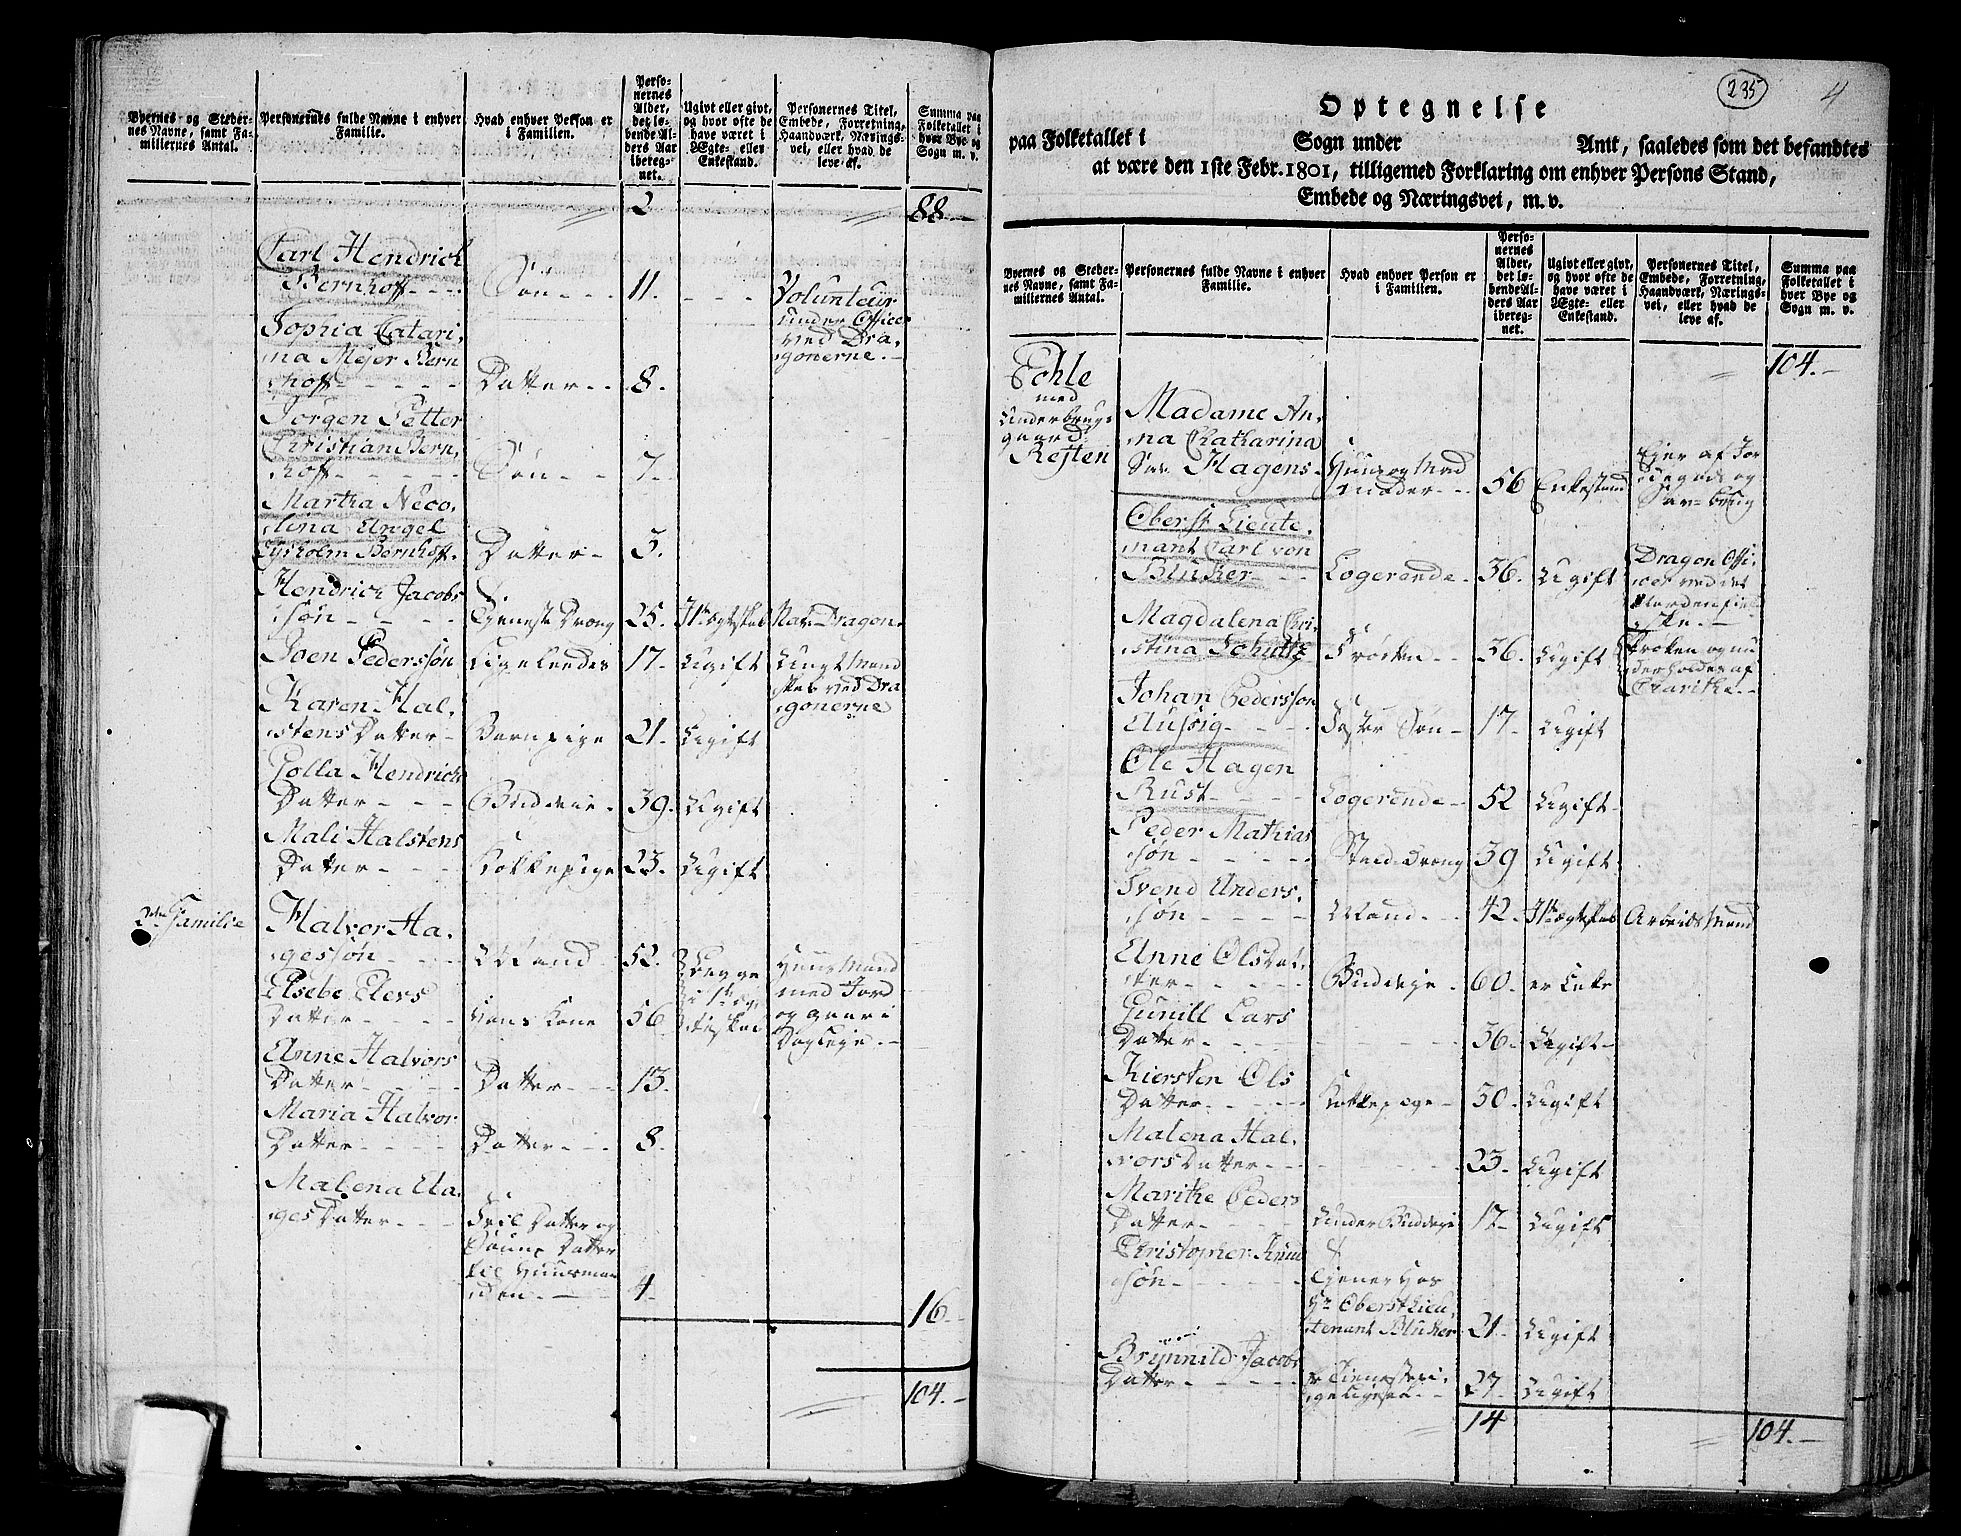 Byernes- og Steder-
nes Navne, samt Fa-
miliernes Antal.
Personernes fulde Navne i enhver
Familie.
Hvad enhver Person er
i Familien.
Perso-
nernes
Alder,
det lø-
bende Al-
ders Aar
ibereg-
net.
Ugivt eller givt,
og hvor ofte de
have været i
Ægte- eller
Enkestand.
Personernes Titel,
Embede, Forretning,
Haandværk, Nærings-
vei, eller hvad de
leve af.
Summa paa
Folketallet i
hver Bye og
Sogn m. v.
2 88.
Carl Hendrich
Bernhoff Søn 11. Volunteur
under Office
ved Dra
gonerne.
Sophia Catari
na Mejer Bern
hoff Datter 8.
Jørgen Petter
Christian Bern
hoff Søn 7.
Martha Neco
lina Angel
Bernhoff. Datter 5.
Hendrich Jacobs
søn Tieneste Dreng 25. 1te ægteskab Nat. Dragon.
Joen Pedersøn Ligeledes 17. Ugift Ungt Mand
skab ved Dra
gonerne
Karen Hal
stens Datter Barnpige 21. Ugift
Golla Hendrichs
Datter Buddeie 39. Ugift
Mali Halstens
Datter Kokkepige 23. Ugift
2den Familie Halvor Ha
gesøn Mand 52. Begge
i 1te æg
teskab
Huus Mand
med Jord
og gaar i
Dagleje
Elsebe Elers
Datter Hans Kone 56
Anne Halvors
Datter Datter 13.
Maria Halvor
Datter Datter 8.
Malena Ela
ges Datter Datter og
Datter
til Huusman
den 4
16
104.
235
4
Optegnelse
paa Folketallet i Sogn under Amt, saaledes som det befandtes
at være den 1ste Febr. 1801, tilligemed Forklaring om enhver Persons Stand,
Embede og Næringsvei, m. v.
Byernes og Steder-
nes Navne, samt Fa-
miliernes Antal.
Personernes fulde Navne i enhver
Familie.
Hvad enhver Person er
i Familien.
Perso-
nernes
Alder,
det lø-
bende Al-
ders Aar
ibereg-
net.
Ugivt eller givt,
og hvor ofte de
have været i
Ægte- eller
Enkestand.
Personernes Titel,
Embede, Forretning,
Haandværk, Nærings-
vei, eller hvad de
leve af.
Summa paa
Folketallet i
hver Bye og
Sogn m. v.
104.
med
Underbrugs
gaard
Rejten
Madame An
na Catharina
Sal. Hagens Huus og Mad
moder 56 Enkestand Ejer af Jor
degods og
Sav-brug
Oberst Lieute
nant Carl von
Blüker Logerende 36. Ugift Dragon Offi
cer ved det
Nordenfiel
ske
Magdalena Chri
stina Schultz Frøiken 36. Ugift Frøken og un
derholdes af
Johan Pedersson
Aussig Foster Søn 17. Ugift
Ole Hagen
Rust Logerende 52 Ugift
Peder Mathias
søn Stald Dreng 39 Ugift
Svend Anders
søn Mand 42. 1te ægteskab Arbeids Mand
Anne Olsdat
ter Buddeje 60. er Enke
Gunill Lars
Datter 36. Ugift
Kiersten Ols
Datter Kokkepige 50. Ugift
Malena Hal
vors Datter 23. Ugift
Marithe Peders
Datter Under Buddeje 17. Ugift
Christopher Knud
søn Tjener hos
Hr Oberstlieu
tenant Blüker 21. Ugift
Brynnild Jacobs
Datter 27. Ugift
14 104.